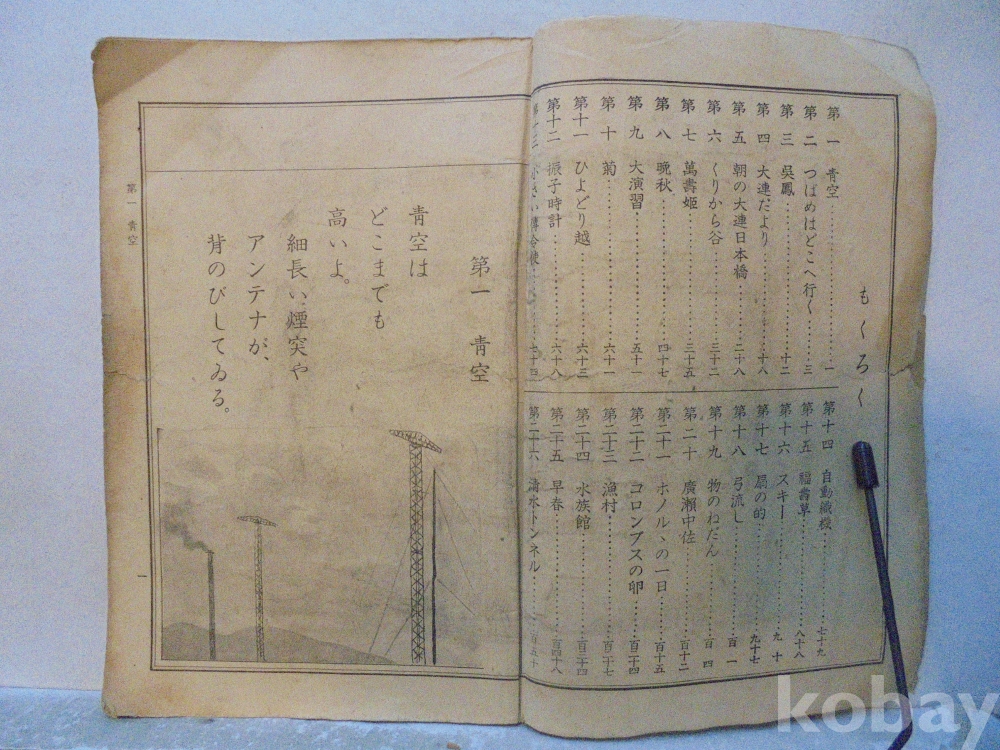 もくろく
第一 青空 一
第二 つばめはどこへ行く 三
第三 吳鳳 十二
第四 大連だより 十八
第五 朝の大連日本橋 二十八
第六 くりから谷 三十二
第七 萬壽姬 三十五
第八 晩秋 四十七
第九 大演習 五十一
第十 菊 六十一
第十一 ひよどり越 六十三
第十二 振子時計 六十八
第十三 小さい傳令使 七十四
第十四 自動織機 七十九
第十五 福壽草 八十八
第十六 スキー 九十
第十七 扇の的 九十七
第十八 弓流し 百一
第十九 物のねだん 百四
第二十 廣瀨中佐 百十二
第二十一 ホノルヽの一日 百十五
第二十二 コロンブスの卵 百二十四
第二十三 漁村 百二十七
第二十四 水族館 百三十四
第二十五 早春 百四十八
第二十六 淸水トンネル 百五十
第一 青空
青空は
どこまでも
高いよ。
細長い煙突や
アンテナが、
背のびしてゐる。
第一 青空
一
kobay